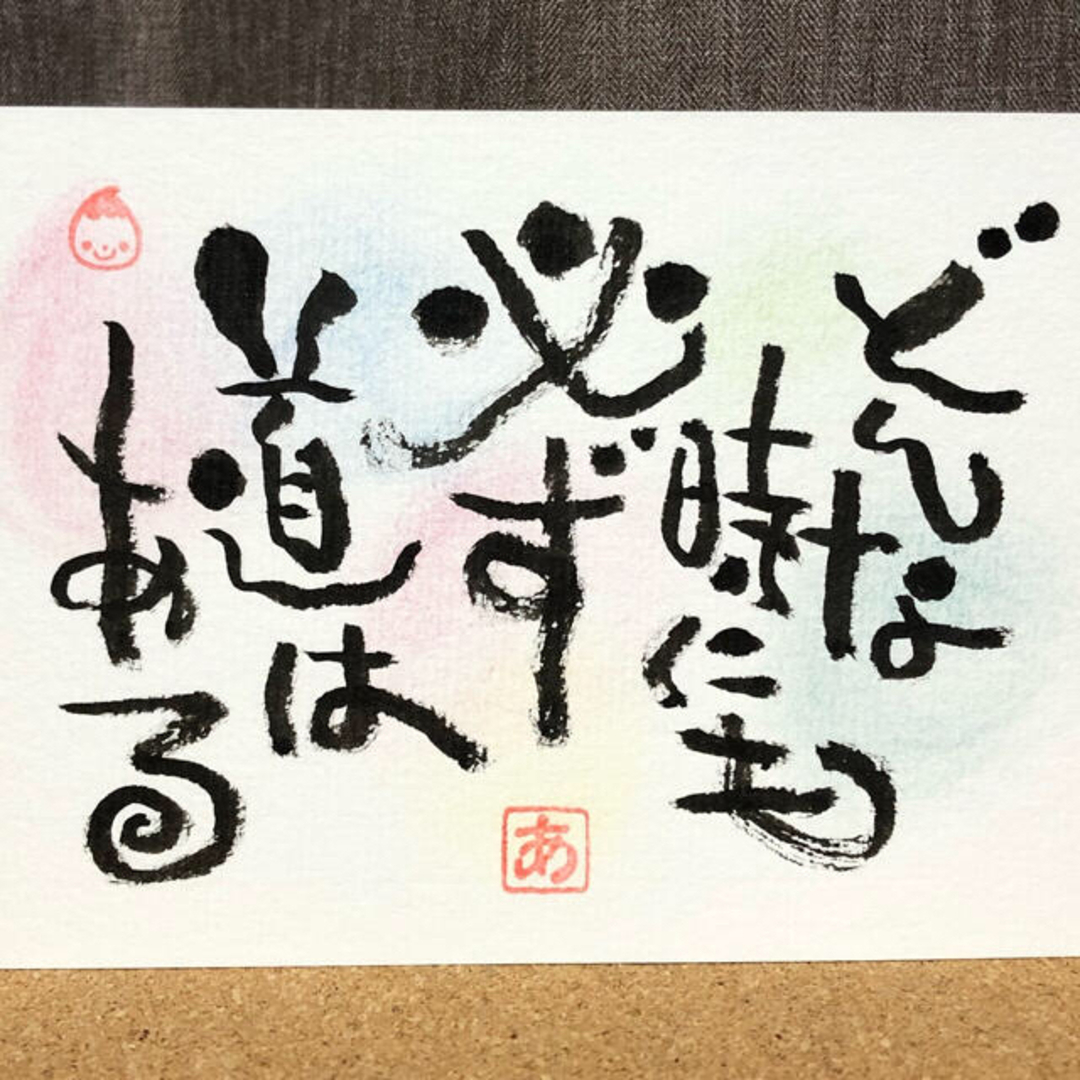 どんな
時にも
必ず
道は
ある
あ